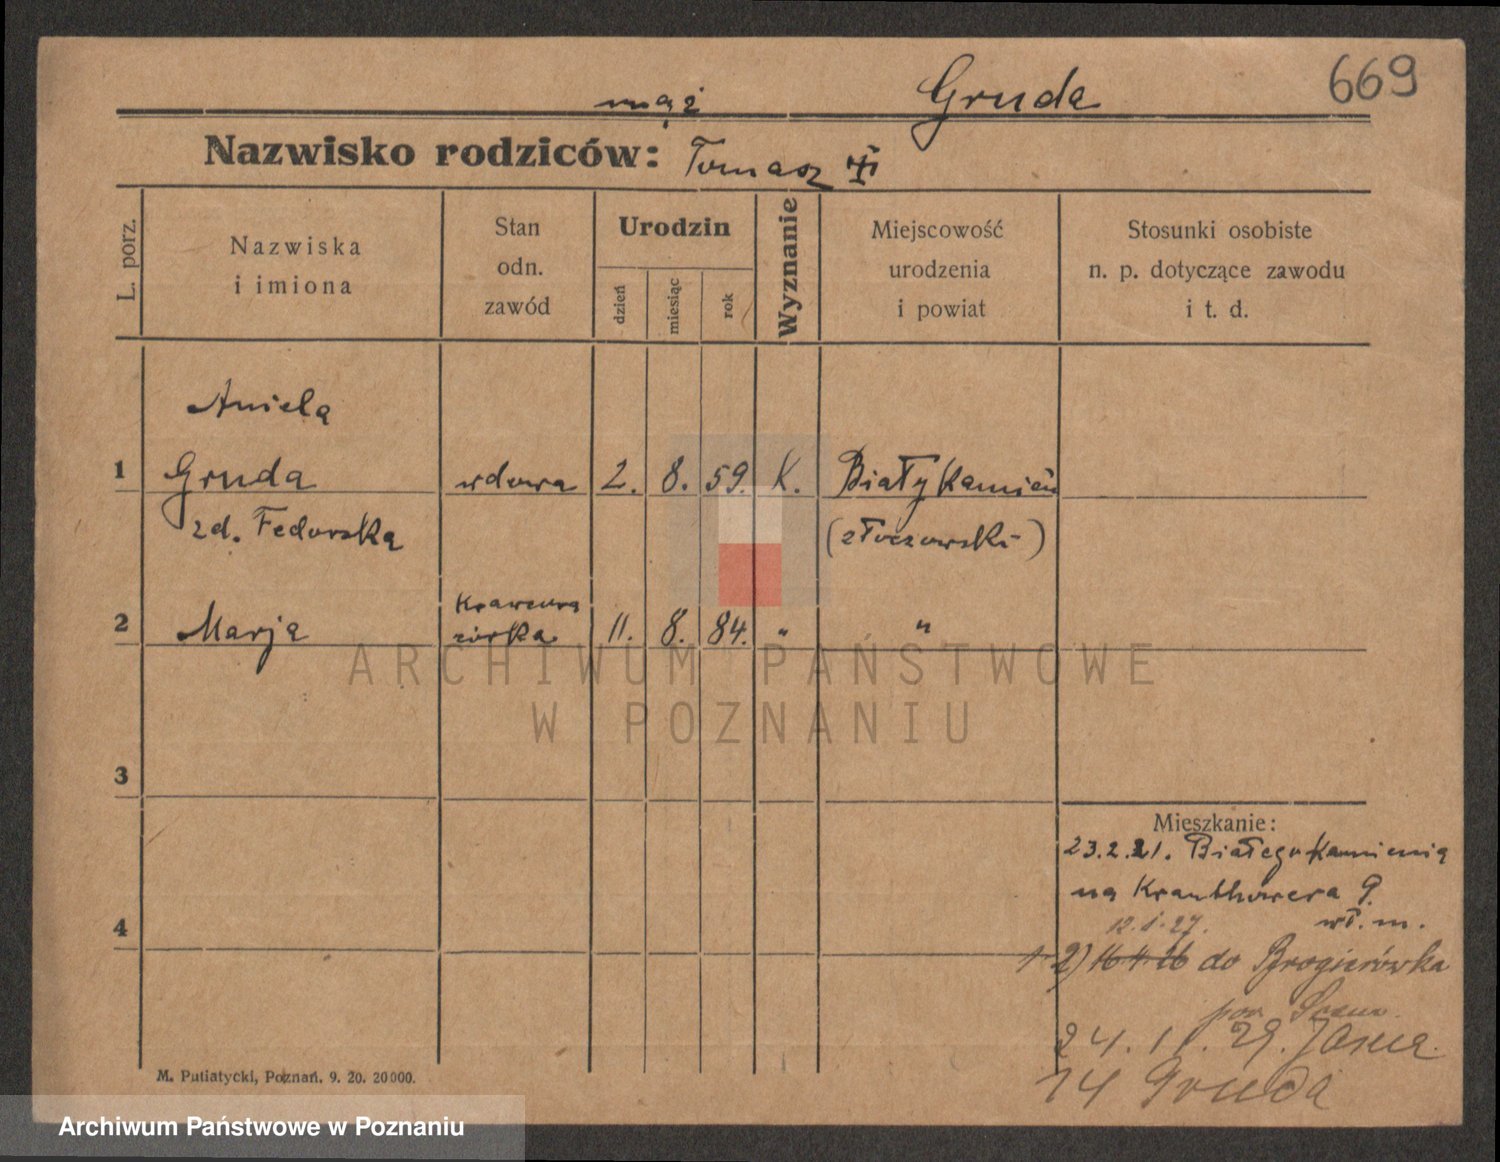 669
mąż Gruda
Nazwisko rodziców: Tomasz
L. porz.
Nazwiska
i imiona
Stan
odn.
zawód
Urodzin
dzień
miesiąc
rok
Wyznanie
Miejscowość
urodzenia
i powiat
Stosunki osobiste
n. p. dotyczące zawodu
i t. d.
Aniela
1 Gruda wdowa 2. 8. 59. K. Biały Kamień
zd. Fedorska (złoczowski)
2 Marja 11. 8. 84. " "
ARCHIWUM PAŃSTWOWE
W POZNANIU
3
Mieszkanie:
23.2.21. Białego Kamienia
na 9.
4
12.1.27. wł. m.
1-2) 16 4 26 do
pow.
24. 11. 29. Jasna
14 Gruda
M. Putiatycki, Poznań. 9. 20. 20000.
Archiwum Państwowe w Poznaniu